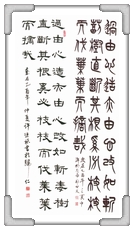 過由心造亦由心改如斬
毒樹直斷其根奚必枝枝
而伐葉葉而摘哉
過由心造亦由心改如斬毒樹
直斷其根奚必枝枝而伐葉葉
而摘哉